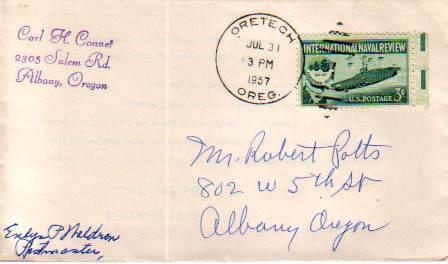 Carl H. Conner
2305 Salem Rd.
Albany, Oregon
ORETECH
JUL 31
3 PM
1957
OREG.
INTERNATIONAL NAVAL REVIEW
U.S. POSTAGE 3¢
Mr. Robert Potts
802 W 5th St
Albany Oregon
Evelyn P Waldron
Postmaster,